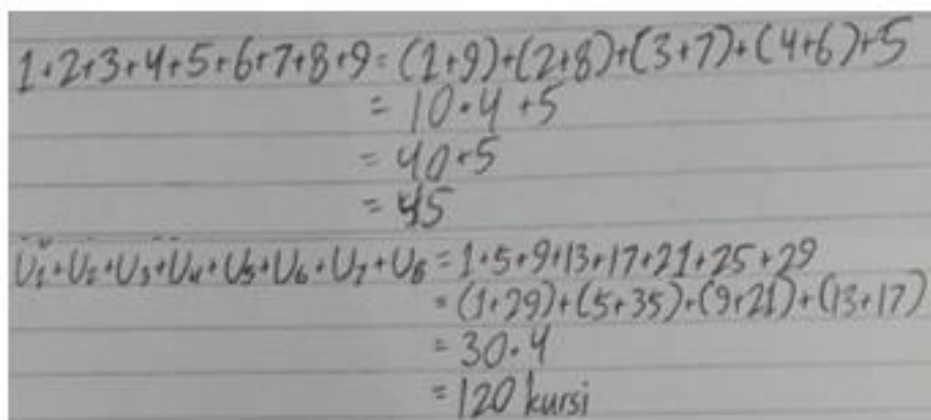 1+2+3+4+5+6+7+8+9 = (1+9)+(2+8)+(3+7)+(4+6)+5
= 10·4 +5
= 40+5
= 45
U₁+U₂+U₃+U₄+U₅+U₆+U₇+U₈ = 1+5+9+13+17+21+25+29
= (1+29)+(5+35)+(9+21)+(13+17)
= 30·4
= 120 kursi